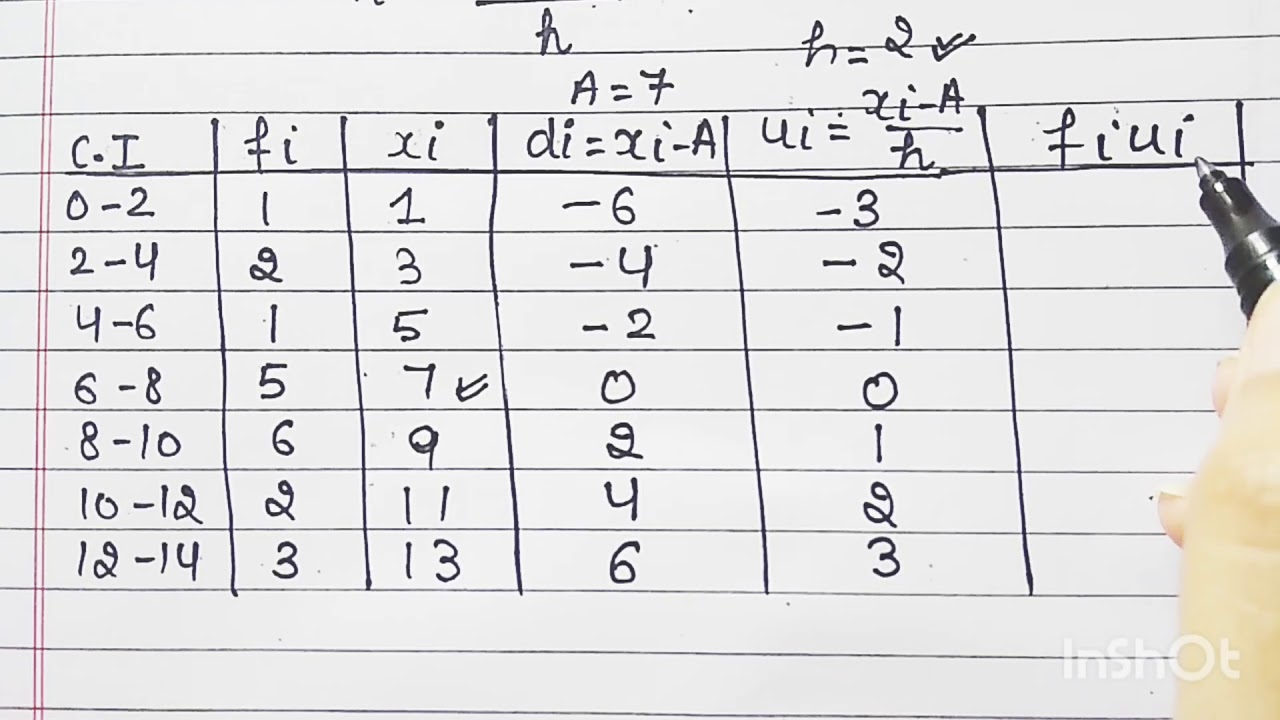 h
h = 2 ✓
A = 7
C.I fi xi di = xi-A ui = xi-A/h fiui
0-2 1 1 -6 -3
2-4 2 3 -4 -2
4-6 1 5 -2 -1
6-8 5 7 ✓ 0 0
8-10 6 9 2 1
10-12 2 11 4 2
12-14 3 13 6 3
InShOt